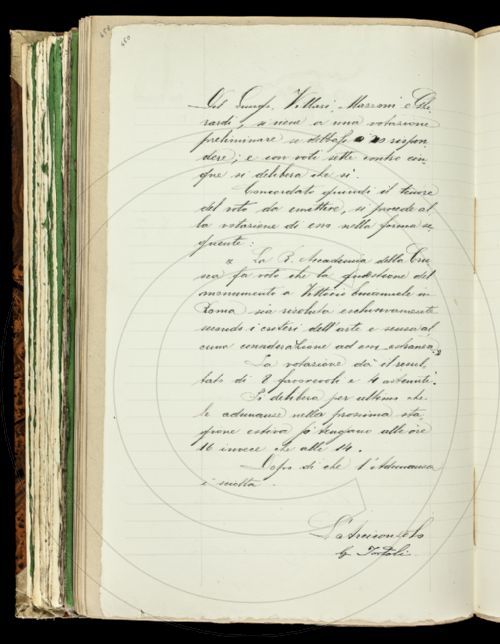 450
450
Del Lungo, Villari, Mazzoni e Ghe
rardi, si viene a una votazione
preliminare se debbasi o no rispon
dere; e con voti sette contro cin
que si delibera che si.
Concordato quindi il tenore
del voto da emettere, si procede al
la votazione di esso nella forma se
guente:
« La R. Accademia della Cru
sca fa voto che la questione del
monumento a Vittorio Emanuele in
Roma sia risoluta esclusivamente
secondo i criteri dell'arte e senza al
cuna considerazione ad essi estranea.»
La votazione dà il resul
tato di 8 favorevoli e 4 astenuti.
Si delibera per ultimo che
le adunanze nella prossima sta
gione estiva si tengano alle ore
16 invece che alle 14.
Dopo di che l'Adunanza
è sciolta.
L'Arciconsolo
G. Tortoli